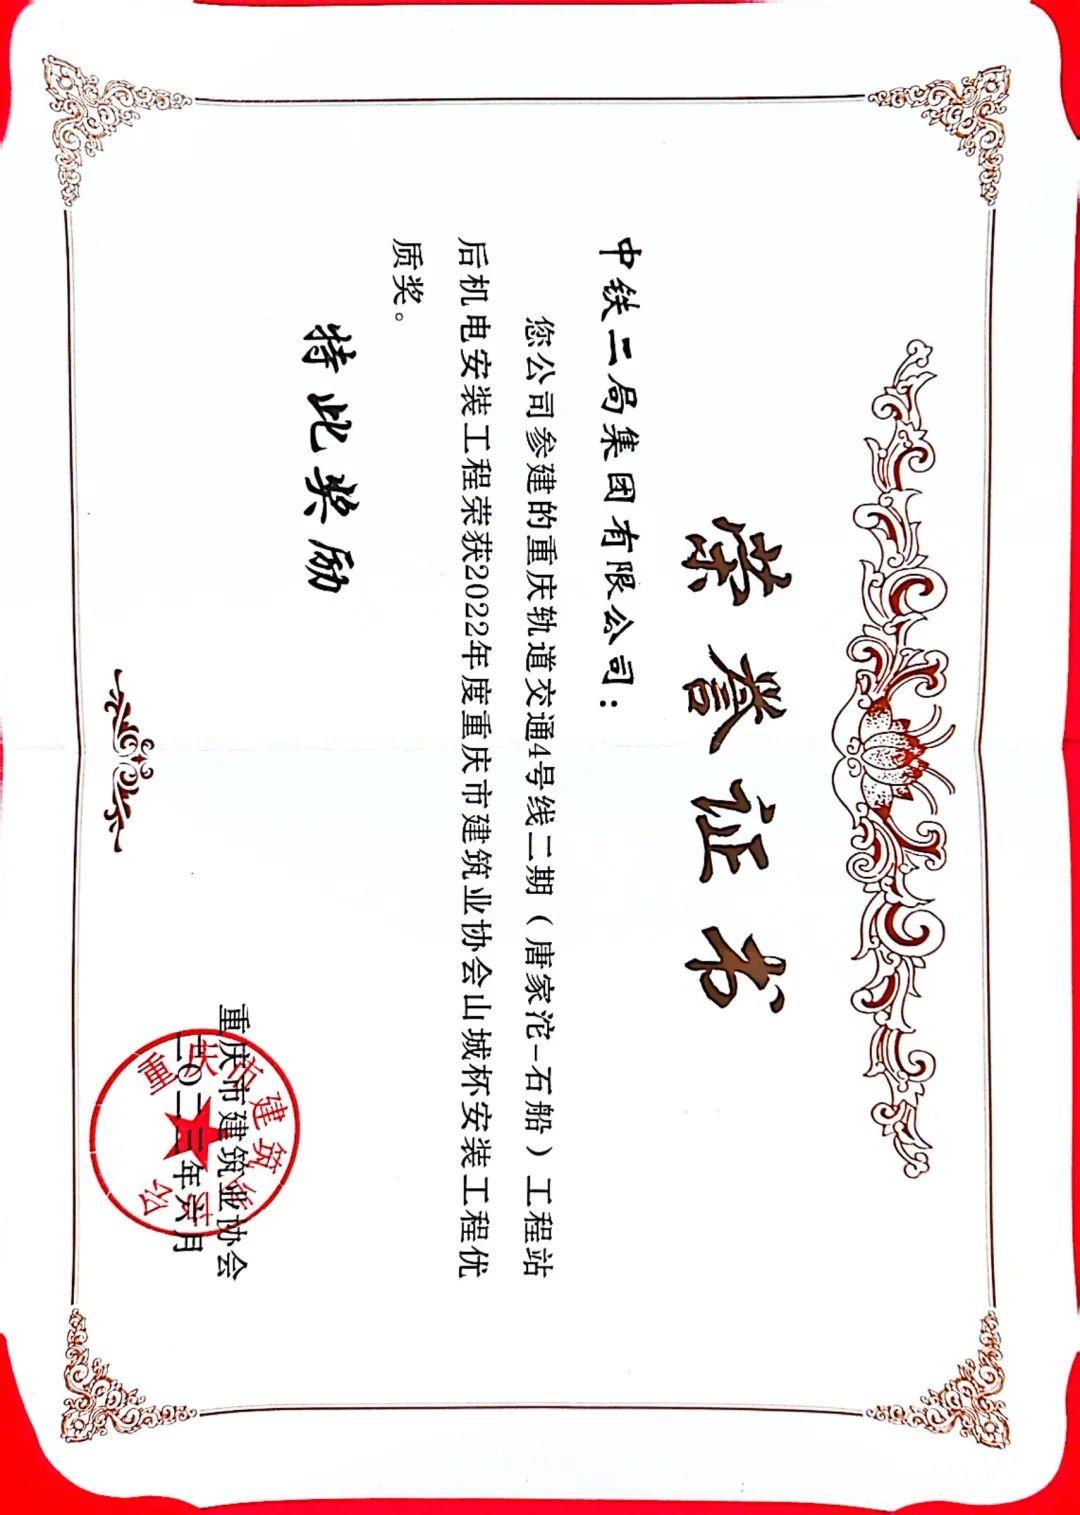 荣誉证书
中铁二局集团有限公司：
您公司参建的重庆轨道交通4号线二期（唐家沱-石船）工程站
后机电安装工程荣获2022年度重庆市建筑业协会山城杯安装工程优
质奖。
特此奖励
重庆市建筑业协会
二〇二三年六月
重庆市建筑业协会